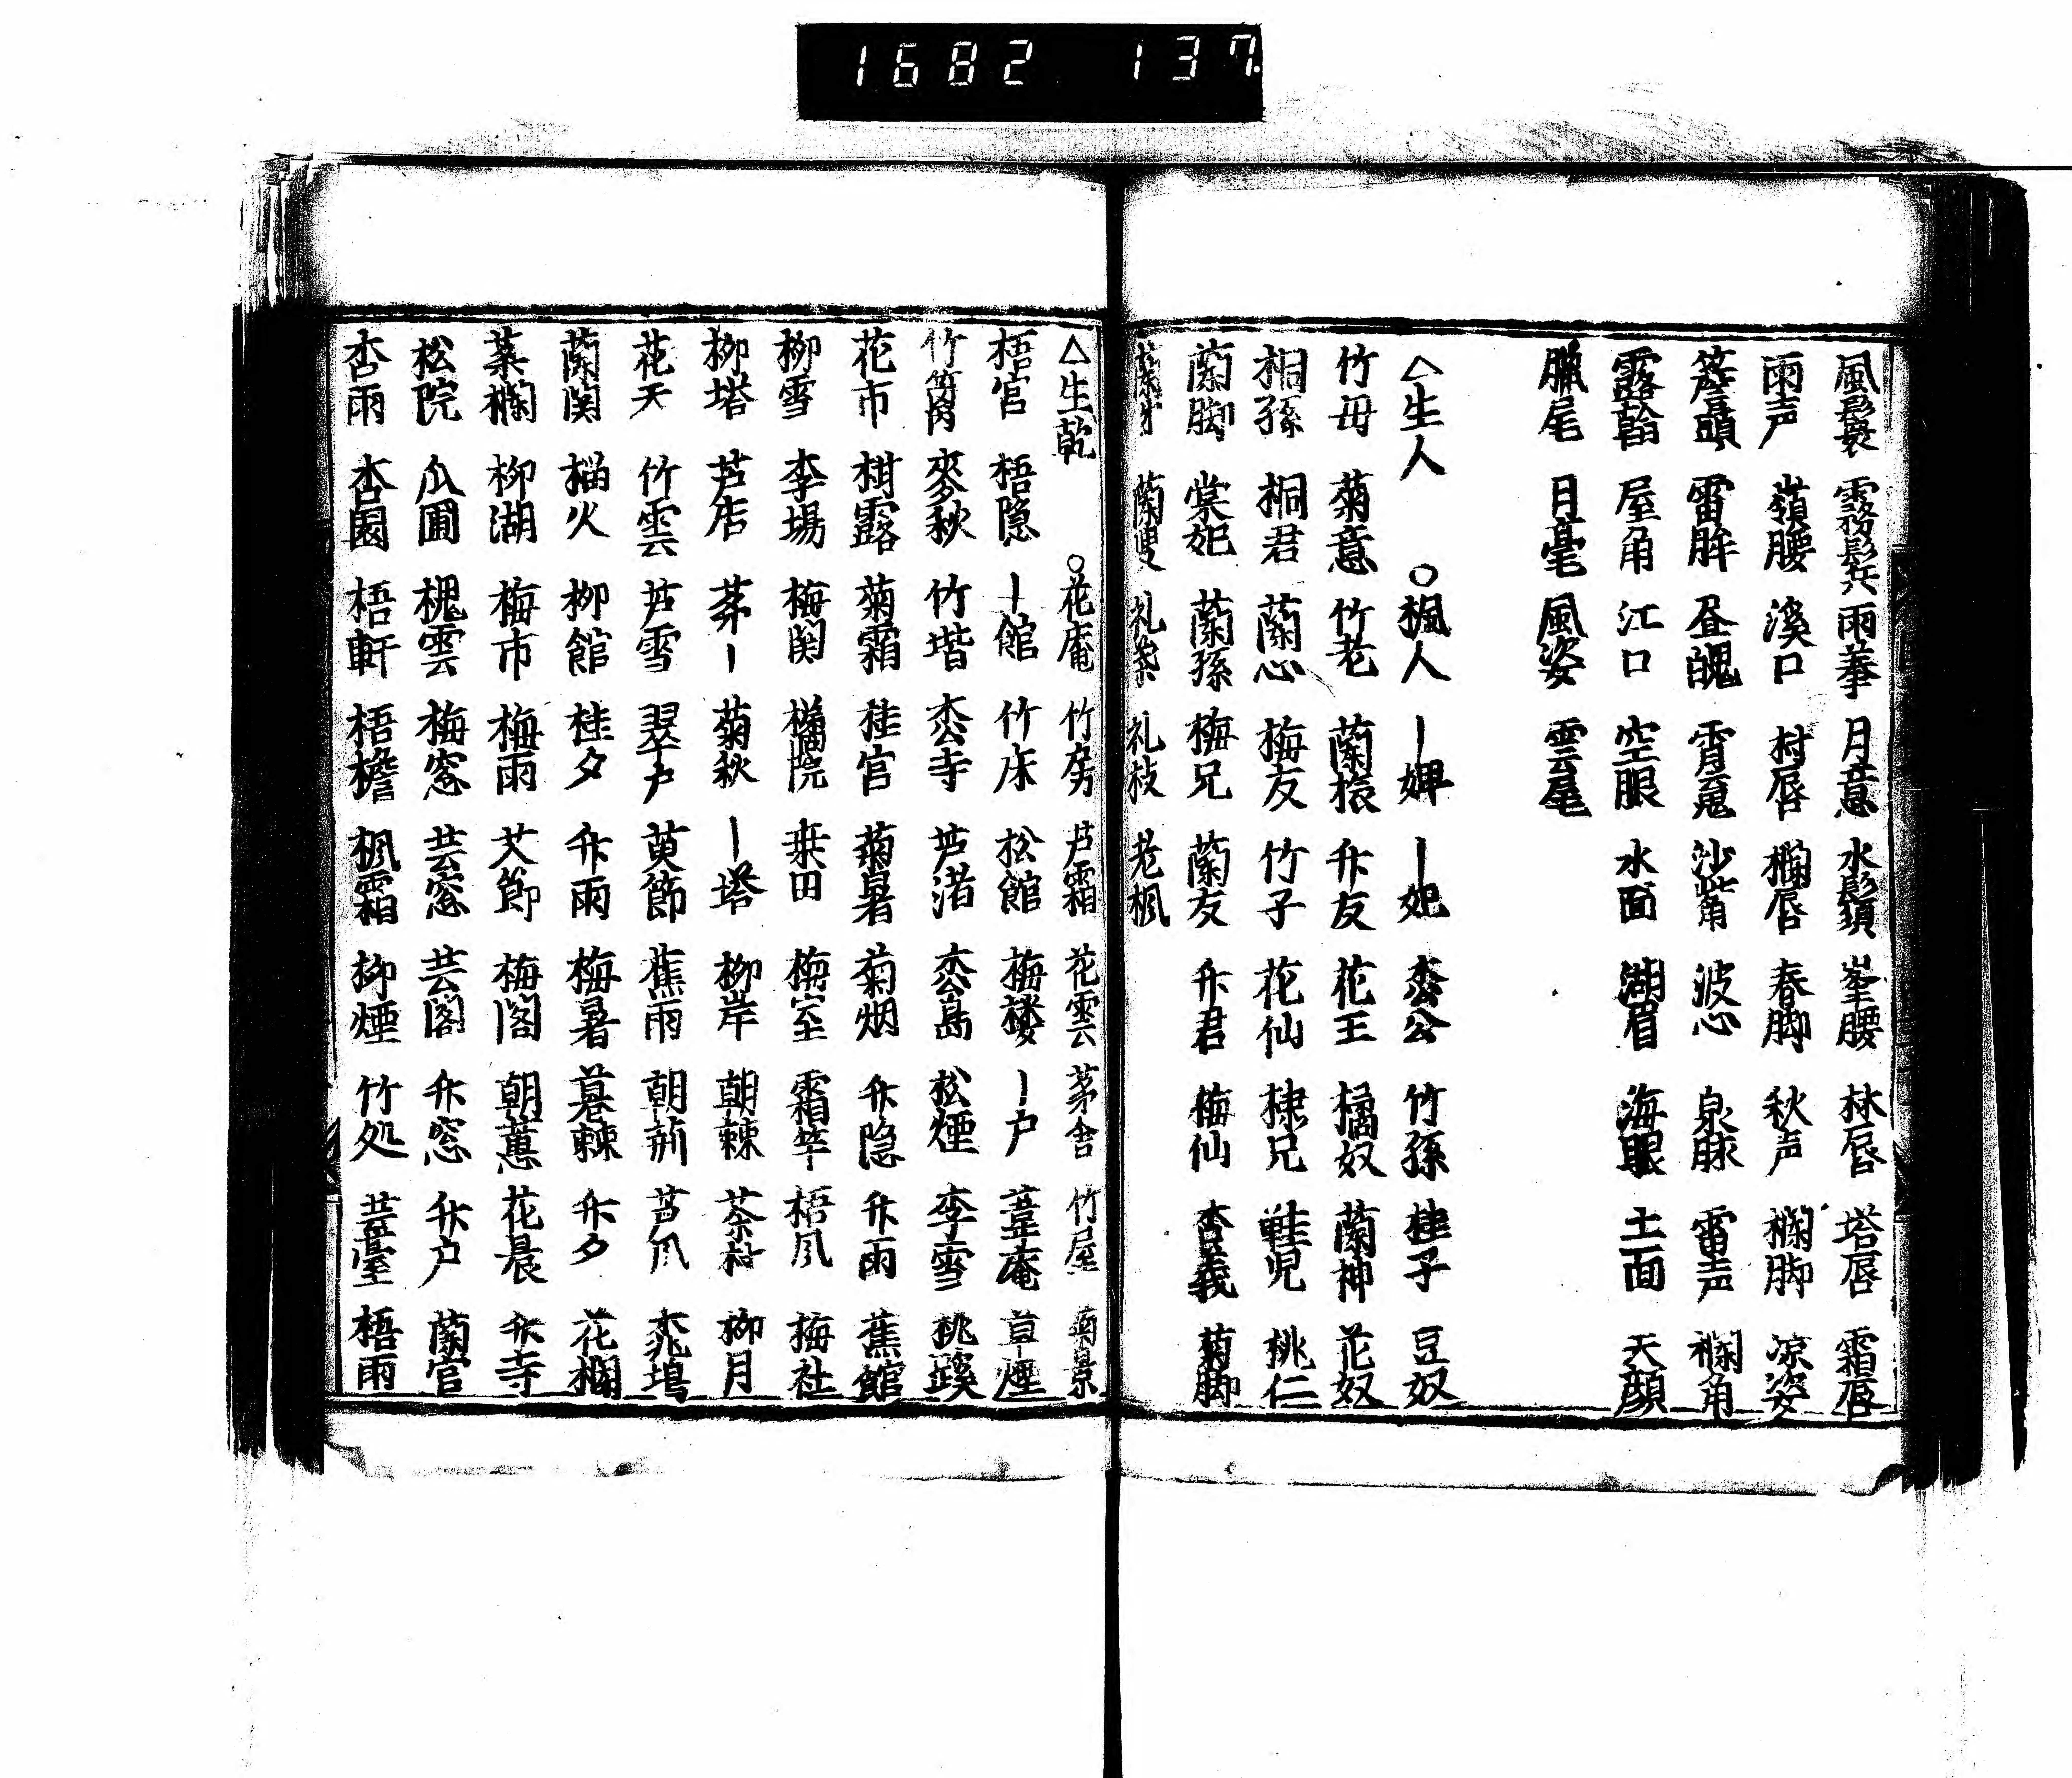 1682 137
風鬟 霧鬂 雨拳 月意 水鬚 峯腰 林唇 塔唇 霜唇
雨声 嶺腰 溪口 村唇 欄唇 春脚 秋声 欄脚 凉姿
簷頭 雷眸 昼魄 宵鬼 沙觜 波心 泉脉 雷声 欄角
露幹 屋角 江口 空眼 水面 湖眉 海眼 土面 天顔
臘尾 月毫 風姿 雲尾
△生人 ○楓人 ー婢 ー妃 枩公 竹孫 桂子 豆奴
竹母 菊意 竹老 蘭猿 𠦄友 花王 橘奴 蘭神 花奴
桐孫 桐君 蘭心 梅友 竹子 花仙 棣兄 鞋児 桃仁
蘭脚 棠妃 蘭孫 梅兄 蘭友 𠦄君 梅仙 杏義 菊脚
蘭叟 老楓
△生乾 ○花庵 竹房 芦霜 花雲 茅舎 竹屋 菊景
梧官 梧隠 ー館 竹床 松館 梅楼 ー户 葦庵 草煙
竹窓 麥秋 竹堦 枩寺 芦渚 枩島 松煙 李雪 桃蹊
花市 柑露 菊霜 桂官 菊暑 菊烟 𠦄隠 𠦄雨 蕉館
柳雪 李場 梅関 橘院 桒田 梅室 霜竿 梧凮 梅社
柳塔 芦店 茅ー 菊秋 ー塔 柳岸 朝棘 茶村 柳月
花天 竹雲 芦雪 翠户 萸節 蕉雨 朝荊 苔凮 桃塢
蘭関 榴火 柳館 桂夕 𠦄雨 梅暑 暮棘 𠦄夕 花欄
菜欄 柳湖 梅市 梅雨 艾節 梅閣 朝蕙 花晨 𠦄寺
松院 瓜圃 槐雲 梅窓 芸窓 芸閣 𠦄窓 𠦄户 蘭官
杏雨 杏園 梧軒 梧檐 楓霜 柳煙 竹処 芸臺 梧雨